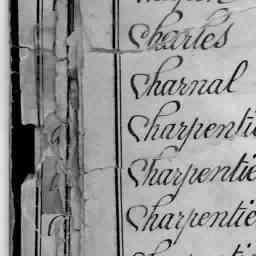 Charles
Charnal
Charpentie
Charpentie
Charpentie